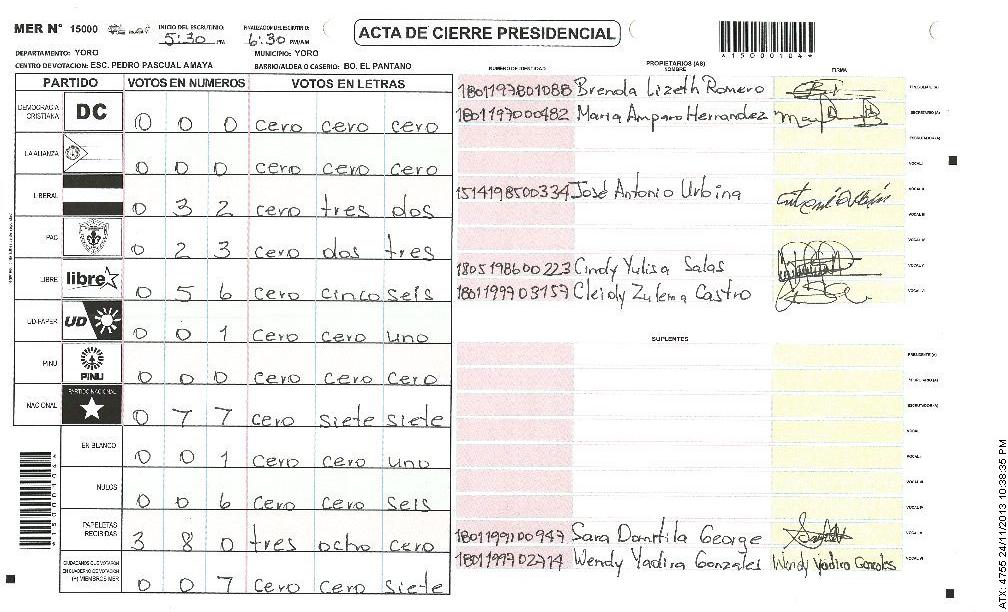 MER Nº 15000 INICIO DEL ESCRUTINIO: 5:30 PM FINALIZACION DEL ESCRUTINIO: 6:30 PM/AM
ACTA DE CIERRE PRESIDENCIAL
*15000104*
DEPARTAMENTO: YORO MUNICIPIO: YORO
CENTRO DE VOTACION: ESC. PEDRO PASCUAL AMAYA BARRIO/ALDEA O CASERIO: BO. EL PANTANO
PARTIDO VOTOS EN NUMEROS VOTOS EN LETRAS
DEMOCRACIA CRISTIANA DC 0 0 0 cero cero cero
LA ALIANZA 0 0 0 cero cero cero
LIBERAL 0 3 2 cero tres dos
PAC 0 2 3 cero dos tres
LIBRE libre 0 5 6 cero cinco seis
UD-FAPER UD 0 0 1 cero cero uno
PINU PINU 0 0 0 cero cero cero
NACIONAL PARTIDO NACIONAL 0 7 7 cero siete siete
EN BLANCO 0 0 1 cero cero uno
NULOS 0 0 6 cero cero seis
PAPELETAS RECIBIDAS 3 8 0 tres ocho cero
CIUDADANOS QUE VOTARON EN CUADERNO DE VOTACION (+) MIEMBROS MER 0 0 7 cero cero siete
NUMERO DE IDENTIDAD PROPIETARIOS (AS) NOMBRE FIRMA
1801197801088 Brenda Lizeth Romero PRESIDENTE (A)
1801197000482 Maria Amparo Hernandez SECRETARIO (A)
ESCRUTADOR (A)
VOCAL I
1514198500334 José Antonio Urbina VOCAL II
VOCAL III
VOCAL IV
1805198600223 Cindy Yulisa Salas VOCAL V
1801199903157 Cleidy Zulema Castro VOCAL VI
SUPLENTES
PRESIDENTE (A)
SECRETARIO (A)
ESCRUTADOR (A)
VOCAL I
VOCAL II
VOCAL III
VOCAL IV
1801199100947 Sara George VOCAL V
1801199902714 Wendy Yadira Gonzales Wendy Yadira Gonzales VOCAL VI
*15000104*
ATX: 4755 24/11/2013 10:38:35 PM